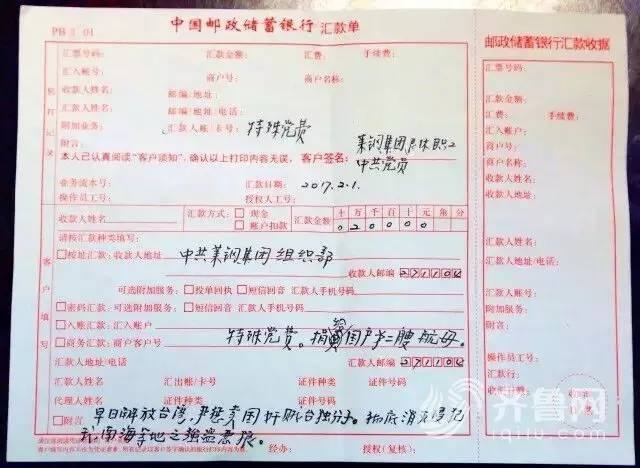 PB 1 01
中国邮政储蓄银行 汇款单
邮政储蓄银行汇款收据
汇票号码: 汇款金额: 汇费: 手续费:
汇入账号: 商户号: 商户名称:
收款人姓名: 邮编/地址:
汇款人姓名: 邮编/地址/电话:
附加业务: 汇款人账/卡号: 特殊党费
附言: 莱钢集团退休职工
本人已认真阅读“客户须知”,确认以上打印内容无误, 客户签名: 中共党员
业务流水号: 汇款日期: 2017.2.1.
操作员工号: 授权人工号:
银行记录
收款人姓名 汇款方式: 现金 账户扣款 汇款金额 十万千百十元角分
020000
请按汇款种类填写:
按址汇款: 收款人地址 中共莱钢集团组织部
收款人邮编 271104
可选附加服务: 投单回执 短信回音 汇款人手机号码
密码汇款: 可选附加服务: 短信回音 汇款人手机号码
入账汇款: 汇入账户
商务汇款: 商户客户号 特殊党费。捐给国产第二艘航母。
汇款人地址/电话 汇款人邮编 271104
汇款人姓名 汇出账/卡号 证件种类 证件号码
代理人姓名 证件种类 证件号码
附言 早日解放台湾,严惩卖国奸贼台独分子。彻底消灭侵犯
我南海等地之强盗恶狼。
客户填写
经办: 授权(复核):
汇票号码:
汇款金额:
汇费: 手续费:
汇入账户:
商户号:
商户名称:
收款人姓名:
收款人地址:
汇款人姓名:
汇款人地址/电话:
汇款人账号:
附加服务:
附言:
操作员工号:
汇款行:
收汇日期:
齐鲁网
iqilu.com